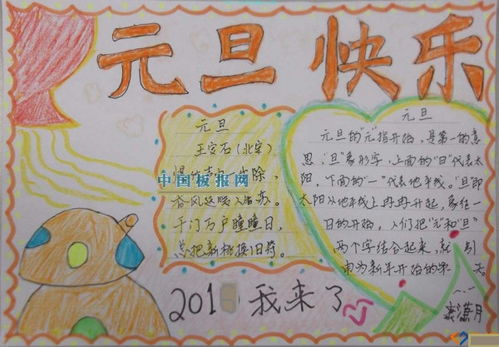 元旦快乐
元旦
王安石(北宋)
爆竹声中一岁除,
春风送暖入屠苏。
千门万户曈曈日,
总把新桃换旧符。
中国板报网
元旦
元旦的"元"指开始,是第一的意
思;"旦"象形字,上面的"日"代表太
阳,下面的"一"代表地平线。"旦"即
太阳从地平线上冉冉升起,象征一
日的开始。人们把"元和"旦"
两个字结合起来,就
为新年开始的第 天
201 我来了